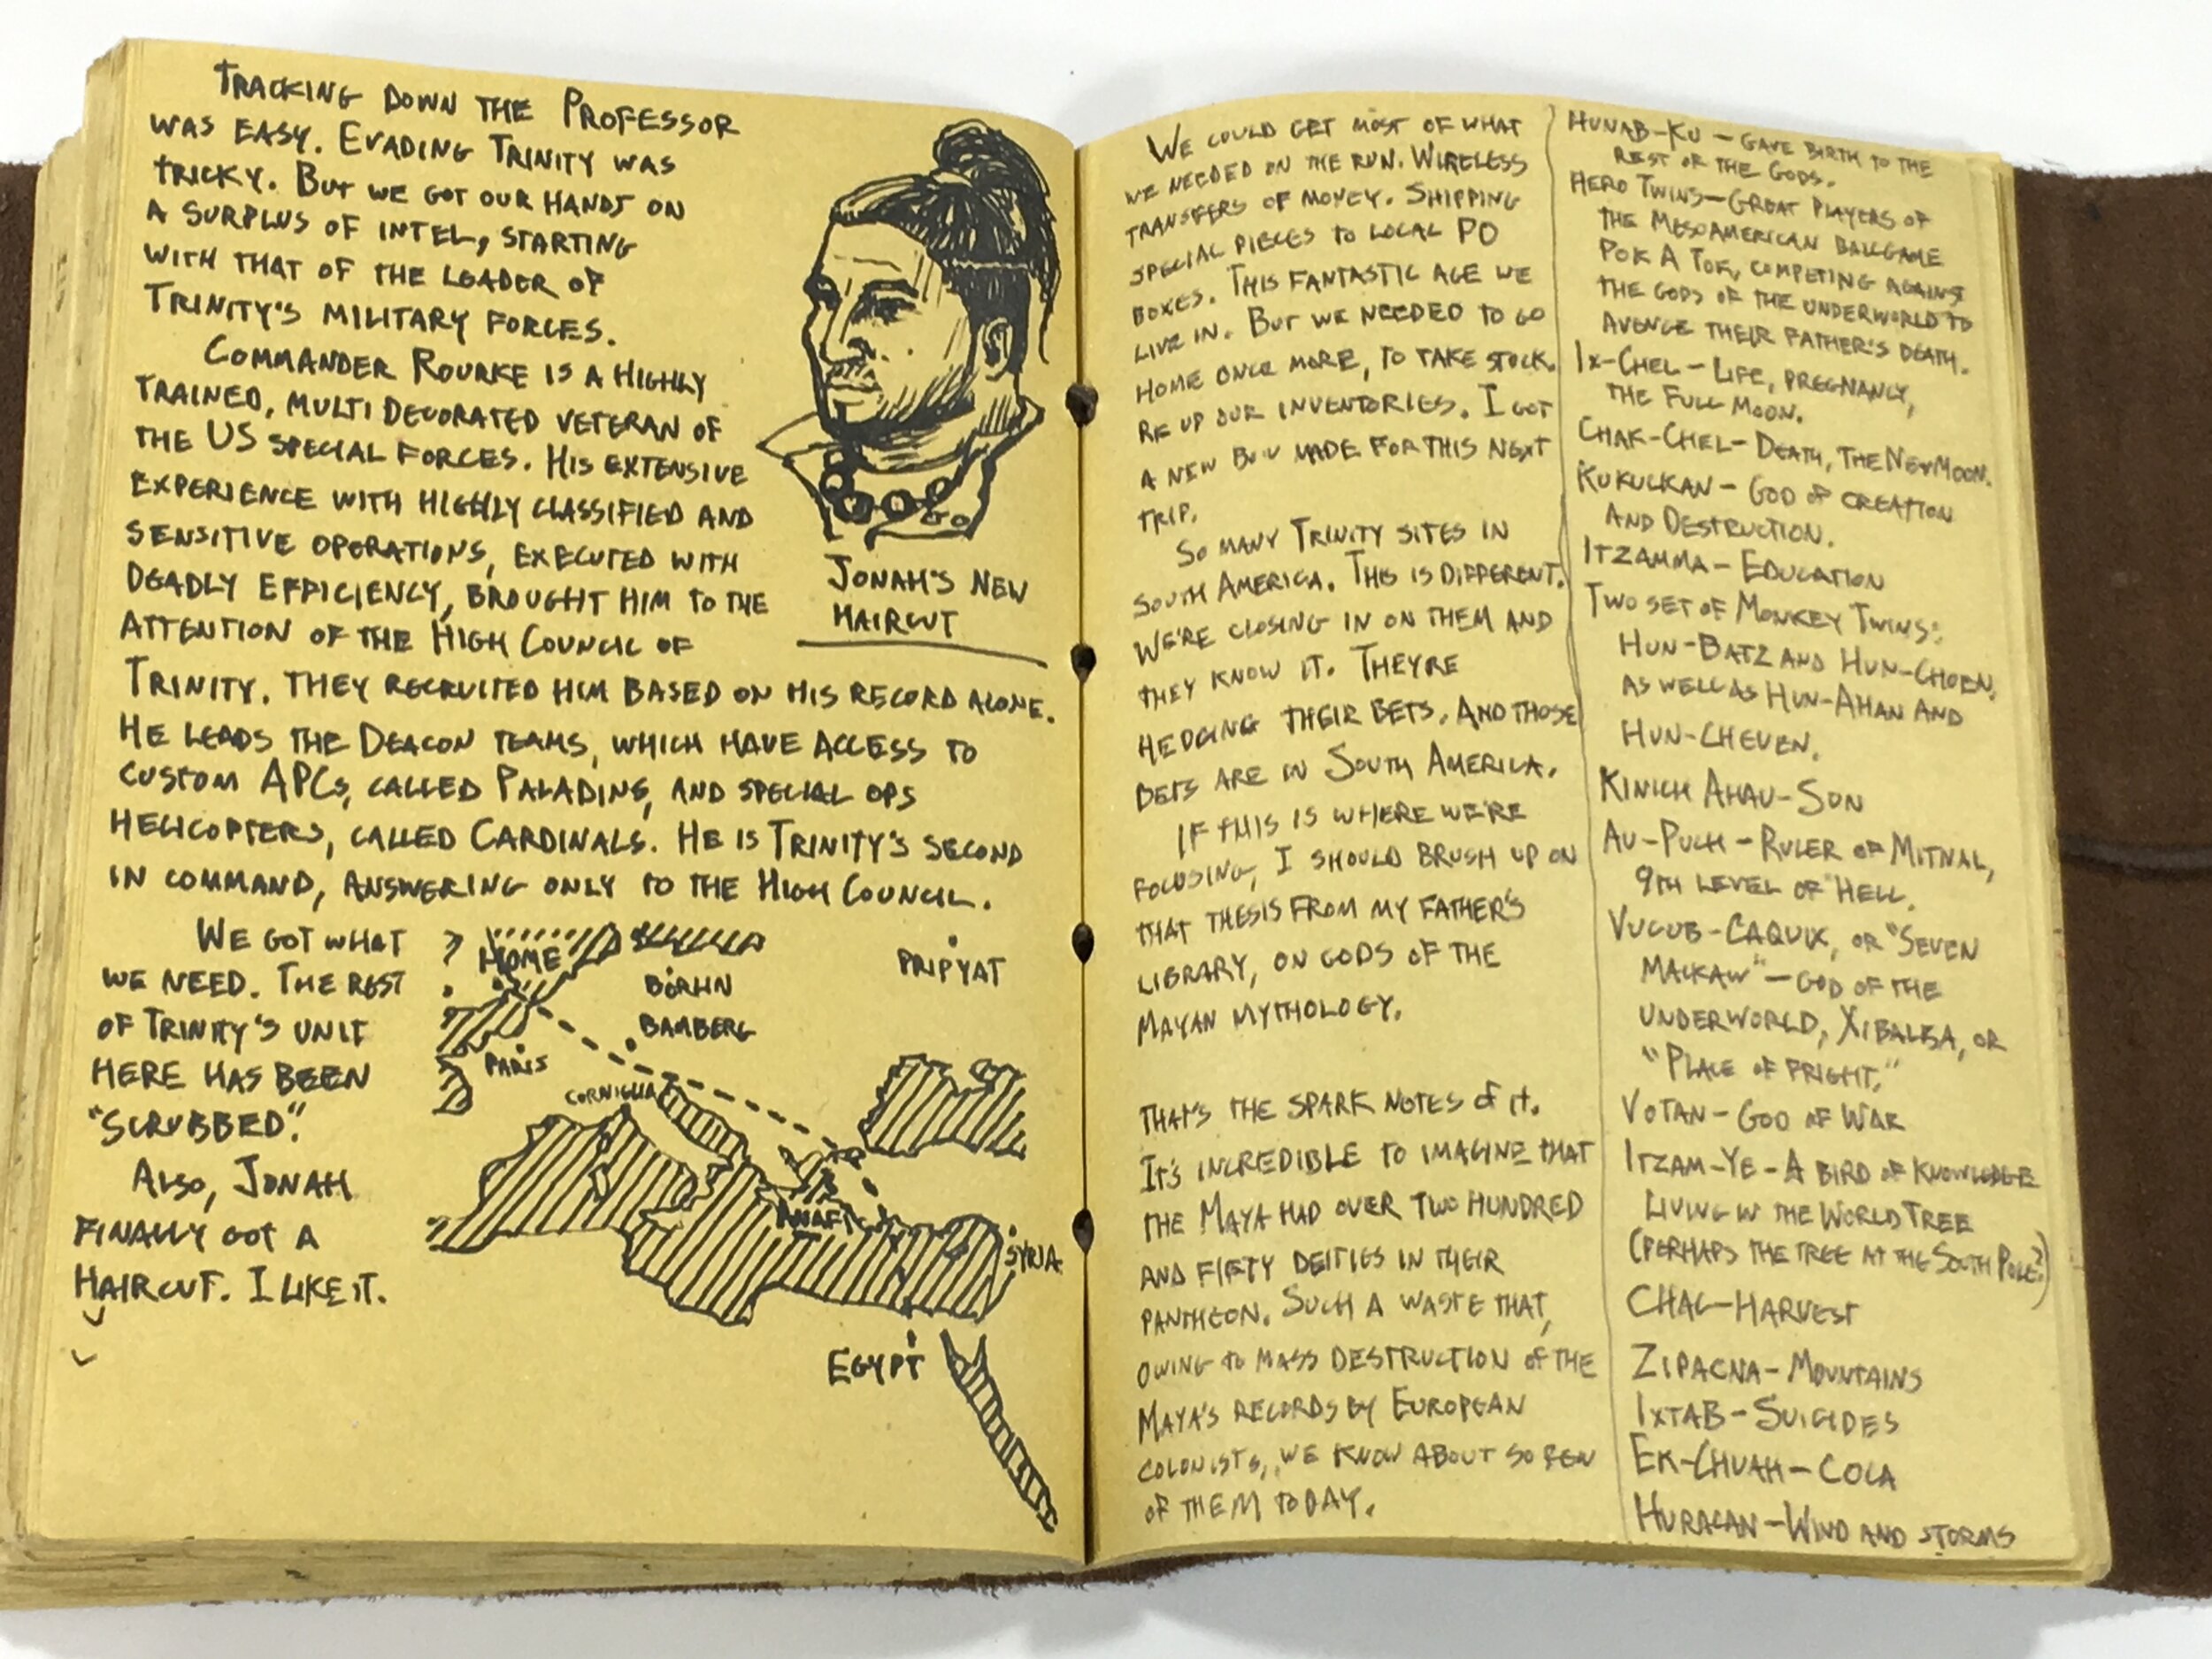 TRACKING DOWN THE PROFESSOR
WAS EASY. EVADING TRINITY WAS
TRICKY. BUT WE GOT OUR HANDS ON
A SURPLUS OF INTEL, STARTING
WITH THAT OF THE LEADER OF
TRINITY'S MILITARY FORCES.
COMMANDER ROURKE IS A HIGHLY
TRAINED, MULTI DECORATED VETERAN OF
THE US SPECIAL FORCES. HIS EXTENSIVE
EXPERIENCE WITH HIGHLY CLASSIFIED AND
SENSITIVE OPERATIONS, EXECUTED WITH
DEADLY EFFICIENCY, BROUGHT HIM TO THE
ATTENTION OF THE HIGH COUNCIL OF
TRINITY. THEY RECRUITED HIM BASED ON HIS RECORD ALONE.
HE LEADS THE DEACON TEAMS, WHICH HAVE ACCESS TO
CUSTOM APCs, CALLED PALADINS, AND SPECIAL OPS
HELICOPTERS, CALLED CARDINALS. HE IS TRINITY'S SECOND
IN COMMAND, ANSWERING ONLY TO THE HIGH COUNCIL.
JONAH'S NEW
HAIRCUT
WE GOT WHAT
WE NEED. THE REST
OF TRINITY'S UNIT
HERE HAS BEEN
"SCRUBBED".
ALSO, JONAH
FINALLY GOT A
HAIRCUT. I LIKE IT.
?
HOME
BERLIN
PRIPYAT
BAMBERG
PARIS
CORNIGLIA
ANAFI
SYRIA
EGYPT
WE COULD GET MOST OF WHAT
WE NEEDED ON THE RUN. WIRELESS
TRANSFERS OF MONEY. SHIPPING
SPECIAL PIECES TO LOCAL PO
BOXES. THIS FANTASTIC AGE WE
LIVE IN. BUT WE NEEDED TO GO
HOME ONCE MORE, TO TAKE STOCK.
RE UP OUR INVENTORIES. I GOT
A NEW BOW MADE FOR THIS NEXT
TRIP.
SO MANY TRINITY SITES IN
SOUTH AMERICA. THIS IS DIFFERENT.
WE'RE CLOSING IN ON THEM AND
THEY KNOW IT. THEYRE
HEDGING THEIR BETS. AND THOSE
BETS ARE IN SOUTH AMERICA.
IF THIS IS WHERE WE'RE
FOCUSING, I SHOULD BRUSH UP ON
THAT THESIS FROM MY FATHER'S
LIBRARY, ON GODS OF THE
MAYAN MYTHOLOGY.
THAT'S THE SPARK NOTES OF IT.
IT'S INCREDIBLE TO IMAGINE THAT
THE MAYA HAD OVER TWO HUNDRED
AND FIFTY DEITIES IN THEIR
PANTHEON. SUCH A WASTE THAT,
OWING TO MASS DESTRUCTION OF THE
MAYA'S RECORDS BY EUROPEAN
COLONISTS, WE KNOW ABOUT SO FEW
OF THEM TODAY.
HUNAB-KU - GAVE BIRTH TO THE
REST OF THE GODS.
HERO TWINS - GREAT PLAYERS OF
THE MESOAMERICAN BALLGAME
POK A TOK, COMPETING AGAINST
THE GODS OF THE UNDERWORLD TO
AVENGE THEIR FATHER'S DEATH.
IX-CHEL - LIFE, PREGNANCY,
THE FULL MOON.
CHAK-CHEL - DEATH, THE NEW MOON.
KUKULKAN - GOD OF CREATION
AND DESTRUCTION.
ITZAMMA - EDUCATION
TWO SET OF MONKEY TWINS:
HUN-BATZ AND HUN-CHOEN,
AS WELL AS HUN-AHAN AND
HUN-CHEVEN.
KINICH AHAU - SUN
AU-PUCH - RULER OF MITNAL,
9TH LEVEL OF HELL.
VUCUB-CAQUIX, OR "SEVEN
MACKAW" - GOD OF THE
UNDERWORLD, XIBALBA, OR
"PLACE OF FRIGHT."
VOTAN - GOD OF WAR
ITZAM-YE - A BIRD OF KNOWLEDGE
LIVING IN THE WORLD TREE
(PERHAPS THE TREE AT THE SOUTH POLE?)
CHAC - HARVEST
ZIPACNA - MOUNTAINS
IXTAB - SUICIDES
EK-CHUAH - COCA
HURACAN - WIND AND STORMS